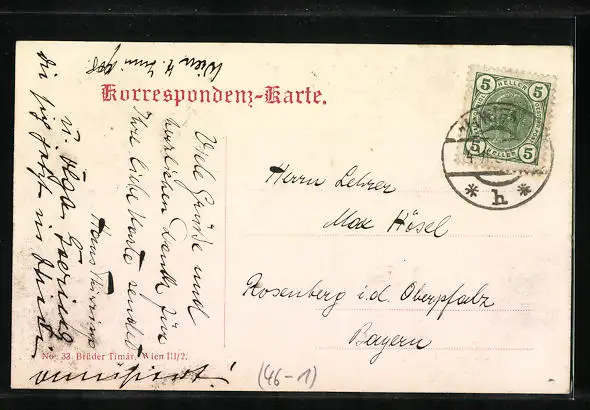 Wien 4. Juni 908
Korrespondenz-Karte.
Viele Grüße und
herzlichen Dank für
Ihre liebe Karte sendet
Hans
u. Olga
die sich jetzt in
Herrn Lehrer
Max Hösel
Rosenberg i.d. Oberpfalz
Bayern
5 HELLER 5
5 HELLER 5
* h *
No. 33 Brüder Timár, Wien III/2.
(46-1)